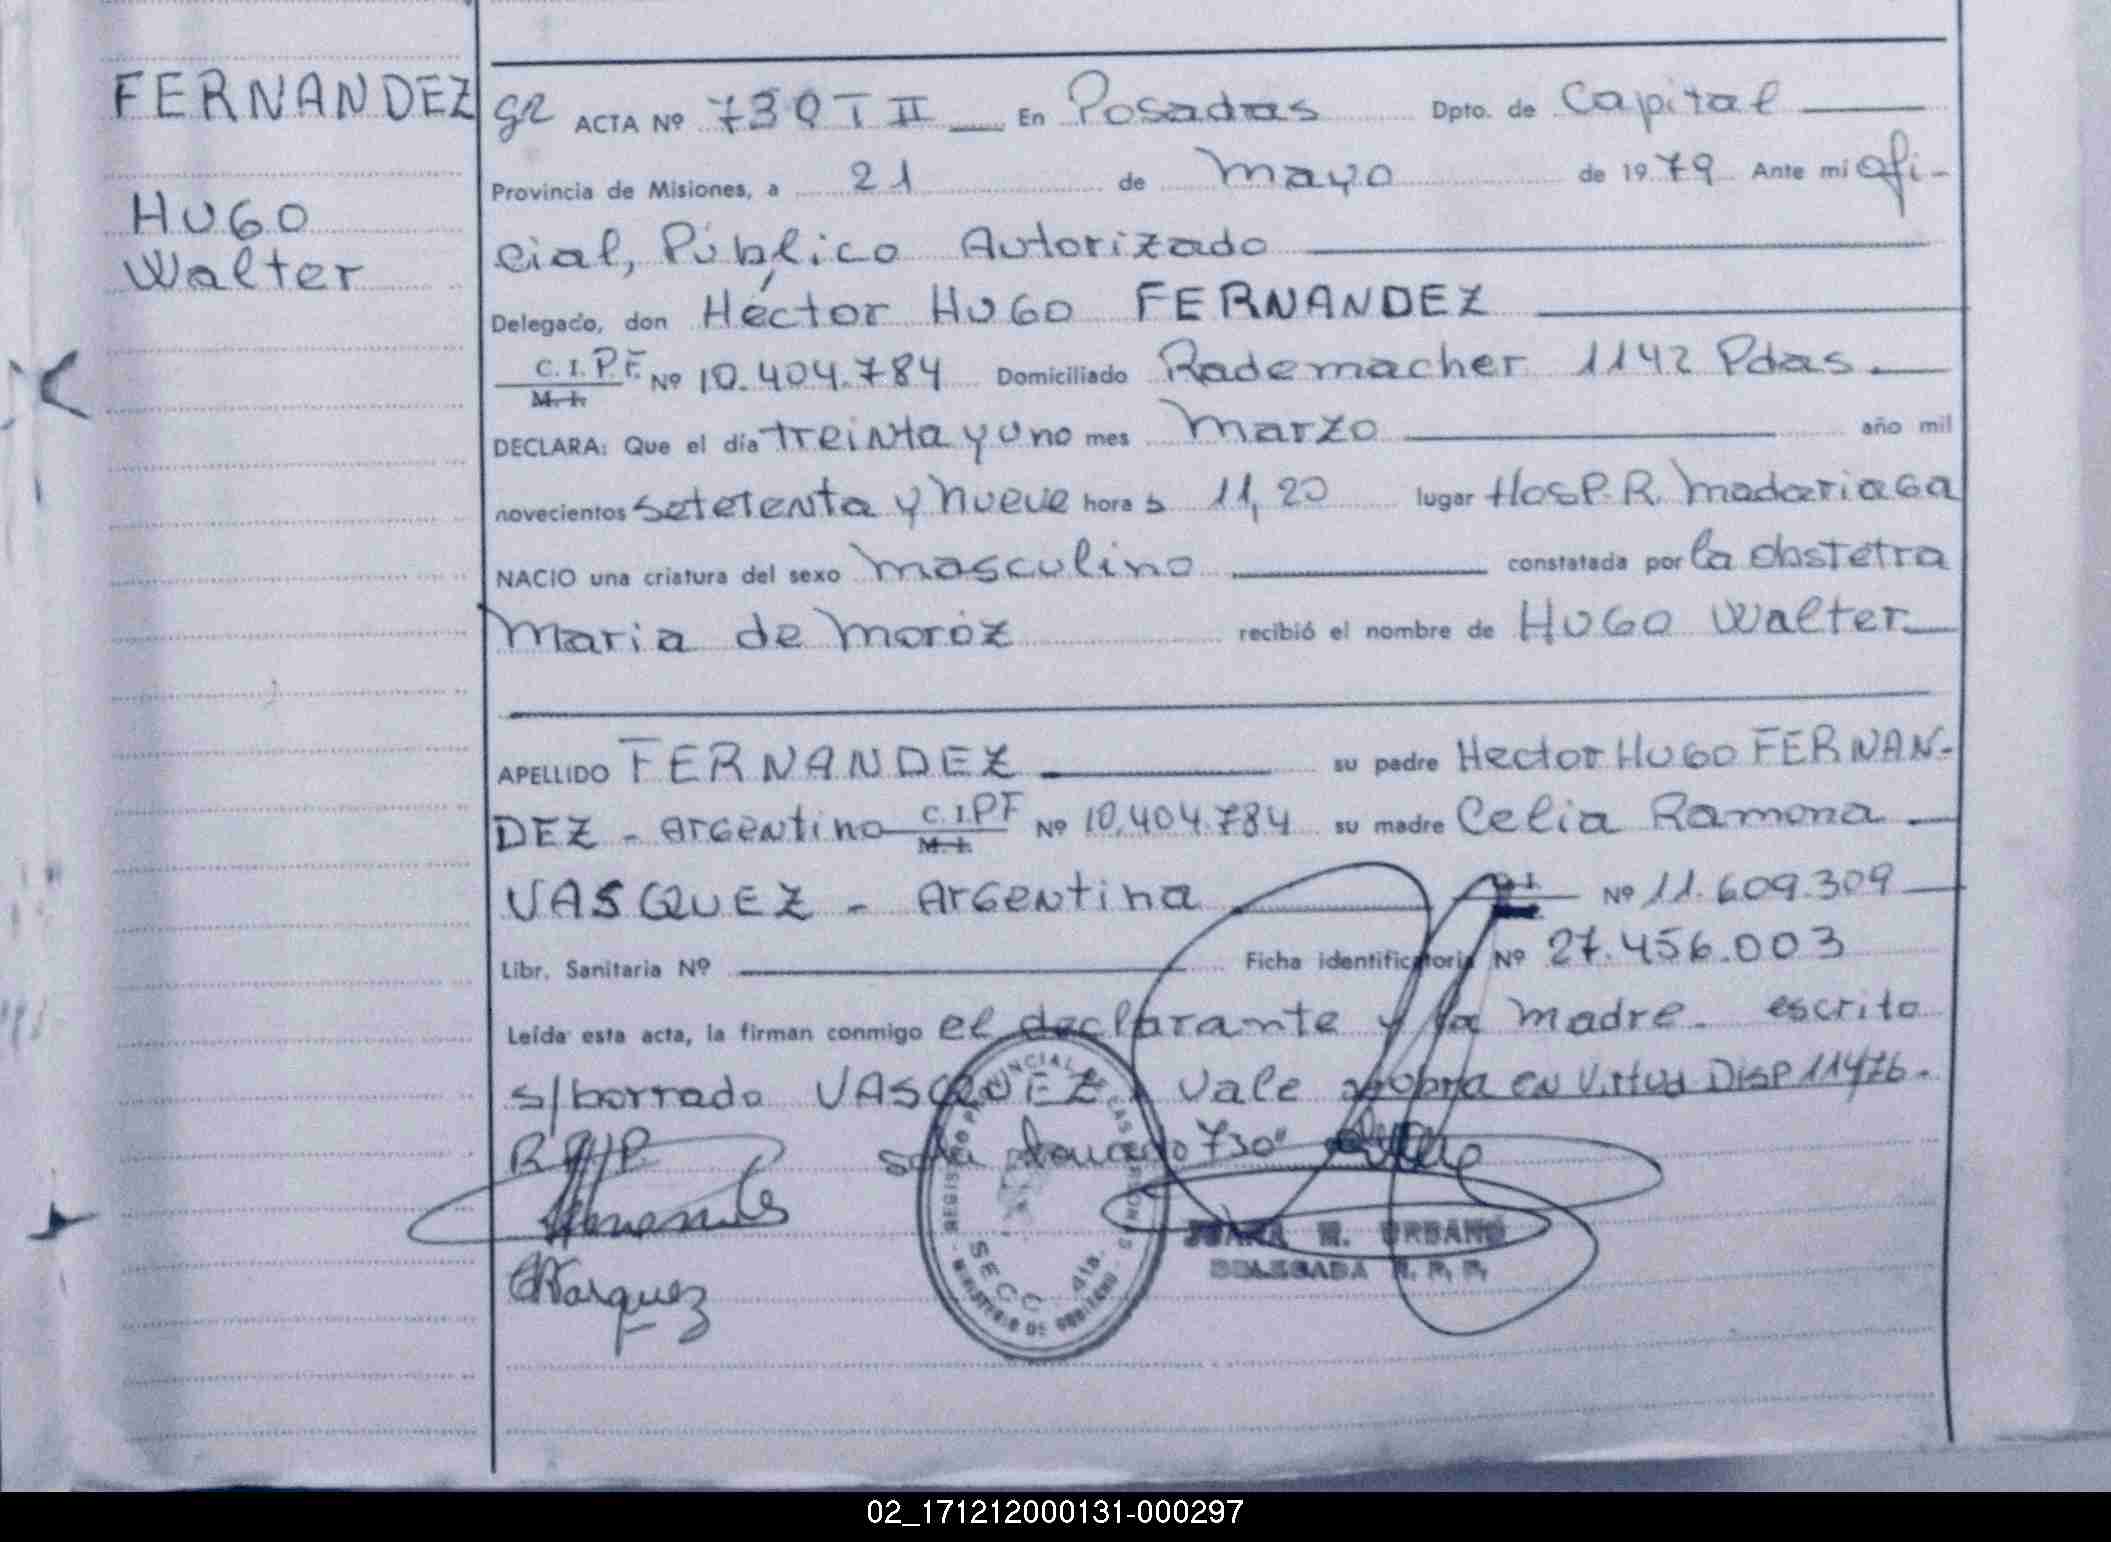 FERNANDEZ
HUGO
Walter
ACTA Nº 730 T II En Posadas Dpto. de Capital
Provincia de Misiones, a 21 de Mayo de 1979 Ante mi ofi-
cial, Público Autorizado
Delegado, don Héctor HUGO FERNANDEZ
C.I.P.F. Nº 10.404.784 Domiciliado Rademacher 1142 Pdas
M. I.
DECLARA: Que el día treinta y uno mes Marzo año mil
novecientos setetenta y nueve hora s 11,20 lugar Hosp. R. Madariaga
NACIO una criatura del sexo Masculino constatada por la obstetra
Maria de Moroz recibió el nombre de HUGO Walter
APELLIDO FERNANDEZ su padre Hector HUGO FERNAN-
DEZ - Argentino C.I.PF Nº 10.404.784 su madre Celia Ramona
M. I.
VASQUEZ - Argentina Nº 11.609.309
Libr. Sanitaria Nº Ficha identificatoria Nº 27.456.003
Leída esta acta, la firman conmigo el declarante y la madre. escrito
s/borrado VASQUEZ Vale en Virtud Disp 114/76.
R.P.P.
730
Vasquez
REGISTRO PROVINCIAL DE LAS PERSONAS
SECC. 4ta.
MINISTERIO DE GOBIERNO
JUANA M. URBANO
DELEGADA R. P. P.
02_171212000131-000297